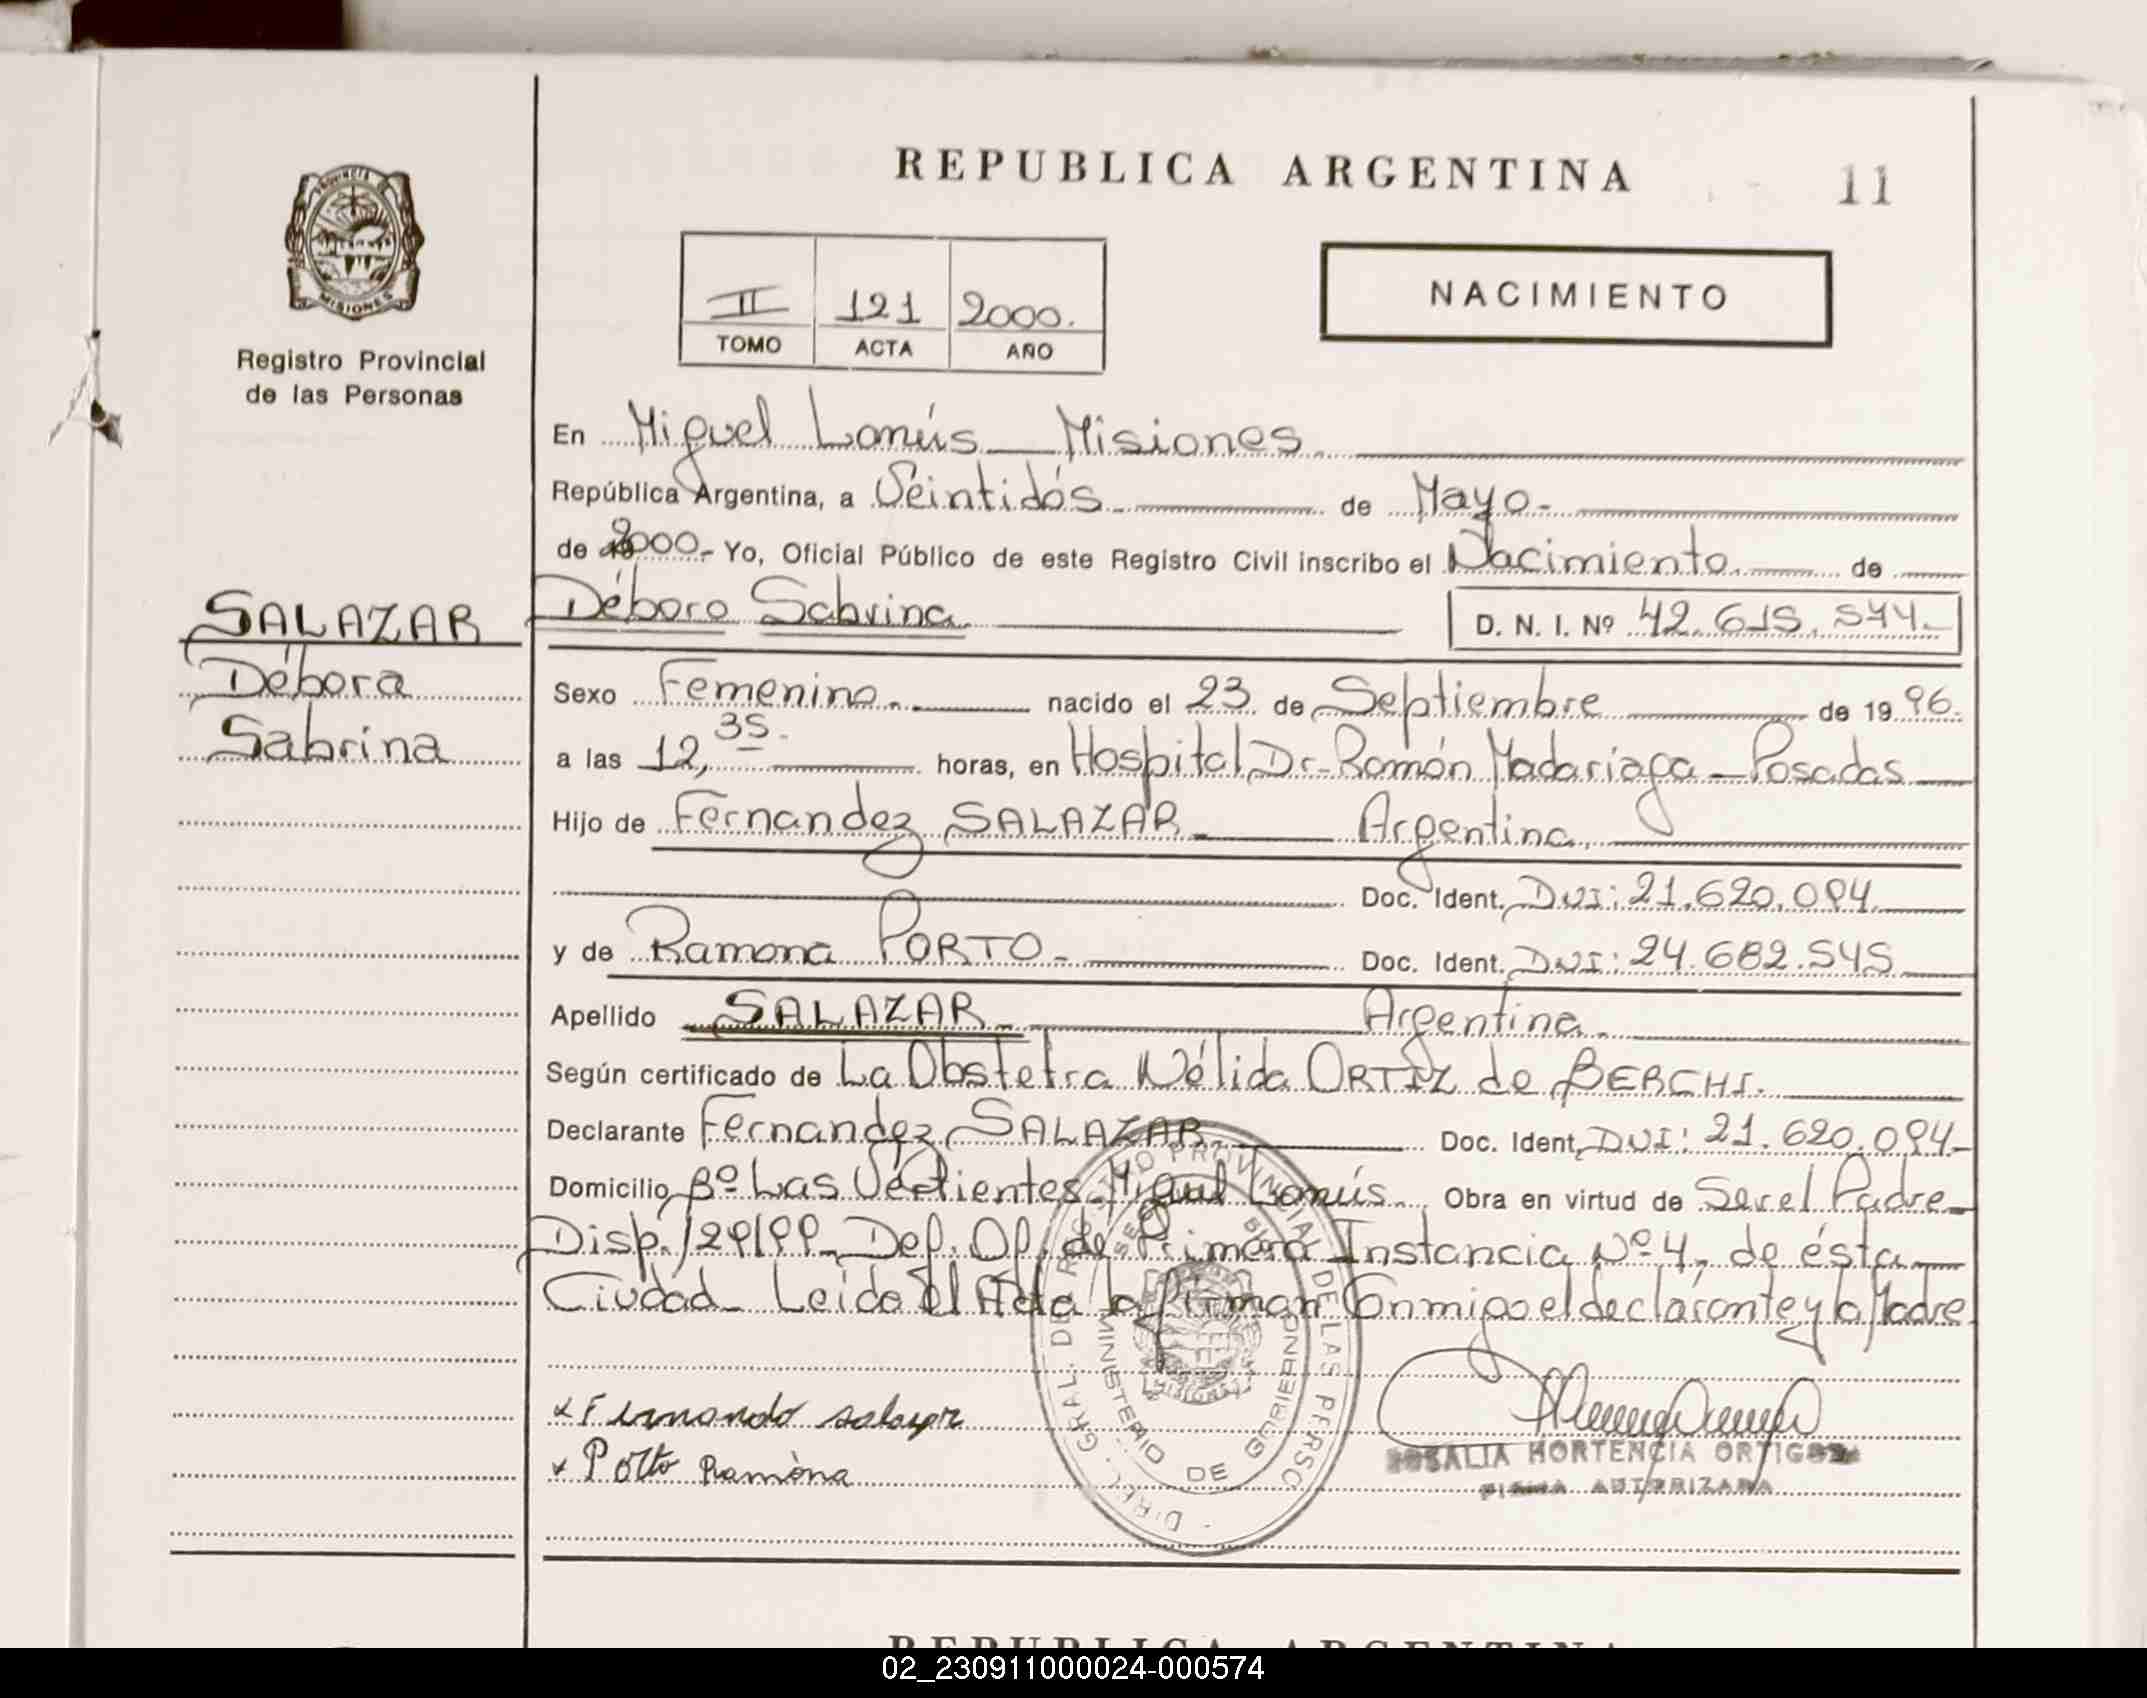 REPUBLICA ARGENTINA
11
PROVINCIA DE
MISIONES
Registro Provincial
de las Personas
II 121 2000.
TOMO ACTA AÑO
NACIMIENTO
En Miguel Lanús - Misiones.
República Argentina, a Veintidós de Mayo-
de 2000.- Yo, Oficial Público de este Registro Civil inscribo el Nacimiento. de
SALAZAR
Débora
Sabrina
Débora Sabrina. D. N. I. Nº 42.615.544.-
Sexo Femenino.- nacido el 23 de Septiembre de 1996.
a las 12,35. horas, en Hospital Dr. Ramón Madariaga - Posadas
Hijo de Fernandez SALAZAR - Argentina.
Doc. Ident. DNI: 21.620.094.
y de Ramona PORTO - Doc. Ident. DNI: 24.682.545
Apellido SALAZAR - Argentina.
Según certificado de La Obstetra Nélida ORTIZ de BERCHI.
Declarante Fernandez SALAZAR. Doc. Ident. DNI: 21.620.094-
Domicilio Bº Las Vertientes - Miguel Lanús. Obra en virtud de Ser el Padre -
Disp. 129/99 - Def. Of. de Primera Instancia Nº 4, de ésta
Ciudad - Leida el Acta la firman Conmigo el declarante y la Madre
x Fernando salazar
x Porto Ramòna
DIREC. GRAL. DE REGISTRO PROVINCIAL DE LAS PERSO
MINISTERIO DE GOBIERNO
ROSALIA HORTENCIA ORTIGOZA
FIRMA AUTORIZADA
REPUBLICA ARGENTINA
02_230911000024-000574